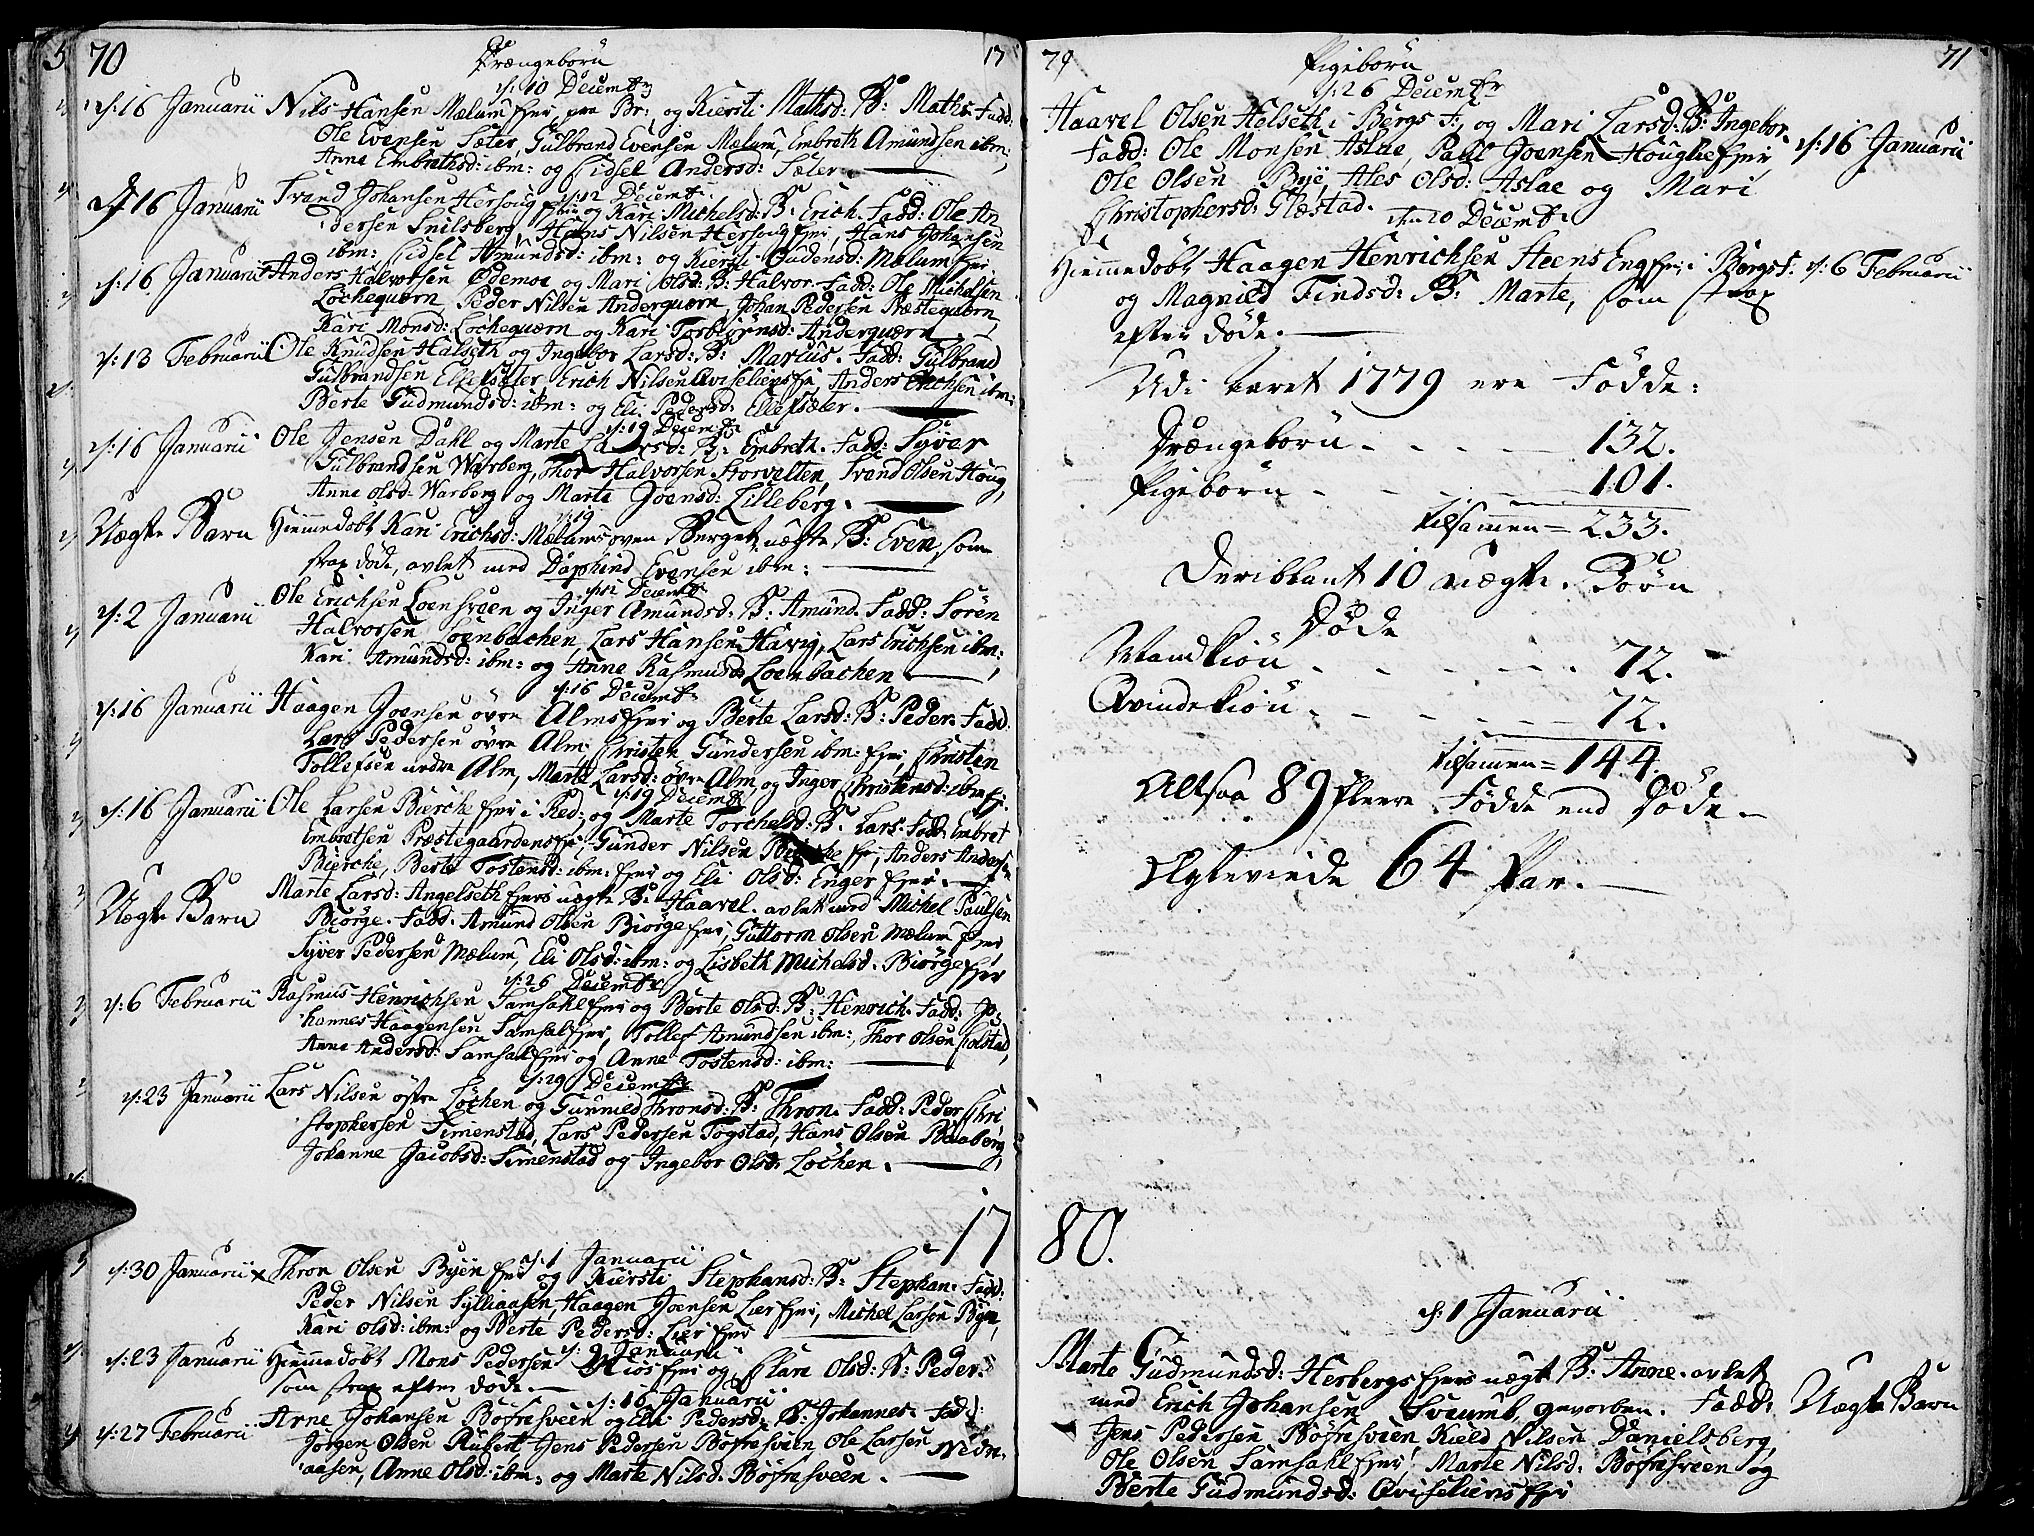 70 Drængebörn 17
d: 10 Decembr
d: 16 Januarii Nils Hansen Mælum Ejer, paa Br: og Kiersti Mathsd: B: Maths. Fadd:
Ole Evensen Sæter, Gulbrand Evensen Mælum, Embreth Amundsen ibm:
Anne Embrethsd: ibm: og Sidsel Andersd: Sæter.
d: 12 Decembr
d: 16 Januarii Trond Johansen Hersoug Ejer og Kari Michelsd: B: Erich. Fadd: Ole An
dersen Snilsberg, Hans Nilsen Hersoug Ejer, Hans Johansen
ibm: Sidsel Amundsd: ibm: og Kiersti Gudensd: Mælum Ejer.
d: 16 Januarii Anders Halvorsen Ødemoe og Mari Olsd: B: Halvor. Fadd: Ole Michelsen
Löchequærn, Peder Nilsen Anderquærn, Johan Pedersen Præstequærn,
Kari Monsd: Löchequærn og Kari Torbiörnsd: Anderquærn
d: 13 Februarii Ole Knudsen Halseth og Ingebor Larsd: B: Marcus. Fadd: Gulbrand
Gulbrandsen Ellefsæter, Erich Nilsen Aviseliens Ejer, Anders Erichsen ibm:
Berte Gudmundsd: ibm: og Eli Pedersd: Ellefsæter.
d: 19 Decembr
d: 16 Januarii Ole Jensen Dahl og Marte Larsd: B: Embreth. Fadd: Syver
Gulbrandsen Warberg, Thor Halvorsen Storvelten, Trond Olsen Houg,
Anne Olsd: Warberg og Marte Joensd: Lilleberg.
d: 19
Uægte Barn Hiemmedöbt Kari Erichsd: Mælums oven Berget uægte B: Even, som
strax döde, avlet med Daphind Evensen ibm:
d: 12 Decembr
d: 2 Januarii Ole Erichsen Loensveen og Inger Amundsd: B: Amund. Fadd: Sören
Halvorsen Loenbachen, Lars Hansen Havig, Lars Erichsen ibm:
Kari Amundsd: ibm: og Anne Rasmusd: Loenbachen
d: 16 Decembr
d: 16 Januarii Haagen Joensen övre Alms Ejer og Berte Larsd: B: Peder. Fadd:
Lars Pedersen övre Alm, Christen Gundersen ibm: Ejer, Christen
Tollefsen nedre Alm, Marte Larsd: övre Alm, og Inger Christensd: ibm Ej.
d: 19 Decembr
d: 16 Januarii Ole Larsen Bierche Ejer i Red: og Marte Torchelsd: B: Lars. Fadd: Embret
Embretsen Præstegaardens Ejr, Gunder Nilsen Bierche Ejr, Anders Andersen
Bierche, Berte Tostensd: ibm: Ejer og Eli Olsd: Enger Ejer.
Uægte Barn Marte Larsd: Angelseth Ejers uægte B: Haavel. avlet med Michel Paulsen
Biörge. Fadd: Amund Olsen Biörge Ejer, Guttorm Olsen Mælum Ejer
Syver Pedersen Mælum, Eli Olsd: ibm: og Lisbeth Michelsd. Biörge Ejer
d: 26 Decembr
d: 6 Februarii Rasmus Henrichsen Samsahl Ejer og Berte Olsd: B: Henrich. Fadd: Jo-
hannes Haagensen Samsal Ejer, Tollef Amundsen ibm:, Thor Olsen Solstad,
Anne Andersd: Samsahl Ejer og Anne Tostensd: ibm:
d: 29 Decembr
d: 23 Januarii Lars Nilsen östre Löchen og Gunnild Thronsd: B: Thron. Fadd: Peder Chri
stophersen Simenstad, Lars Pedersen Togstad, Hans Olsen Baaberg,
Johanne Jacobsd: Simenstad og Ingebor Olsd: Löchen.
17
d: 1 Januarii
d: 30 Januarii Thron Olsen Byen Ejer og Kiersti Stephansd: B: Stephan. Fadd:
Peder Nilsen Sylliaasen, Haagen Joensen Lier Ejer, Michel Larsen Byen,
Kari Olsd: ibm: og Berte Pedersd: Lier Ejer
d: 9 Januarii
d: 23 Januarii Hiemmedöbt Mons Pedersen Mios Ejer og Clare Olsd: B: Peder.
som strax efter döde.
d: 10 Januarii
d: 27 Februarii Arne Johansen Böfresveen og Eli Pedersd: B: Johannes. Fadd:
Jörgen Olsen Rubert, Jens Pedersen Böfresveen, Ole Larsen Neden-
aasen, Anne Olsd: ibm: og Marte Nilsd: Böfresveen.
79 Pigebörn 71
d: 26 Decembr
Haavel Olsen Helseth i Bergs S:, og Mari Larsd: B: Ingebor.
Fadd: Ole Monsen Aslae, Paul Joensen Houglie Ejer, d: 16 Januarii
Ole Olsen Bye, Ales Olsd: Aslae og Mari
Christophersd: Glæstad.
d: 20 Decembr
Hiemmedöbt Haagen Henrichsen Steens Eng Ejer i Bergs S. d: 6 Februarii
og Magnild Findsd: B: Marte, som strax
efter döde.
Udi aaret 1779 ere Födde:
Drængebörn - - - - 132.
Pigebörn - - - - 101.
tilsamen = 233.
Deriblant 10 uægte Börn
Döde
Mandkiön - - - - 72.
Qvindekiön - - - - 72.
tilsamen = 144.
Altsaa 89 fleere Födde end Döde.
Ægteviede 64 Par.
80.
d: 1 Januarii
Marte Gudmundsd: Herbergs Ejers uægte B: Anne. avlet
med Erich Johansen Sveum, gevorben. Fadd: Uægte Barn
Jens Pedersen Böfresveen, Kield Nilsen Danielsberg,
Ole Olsen Samsahl Ejer, Marte Nilsd: Böfresveen og
Berte Gudmundsd: Aviseliens Ejer